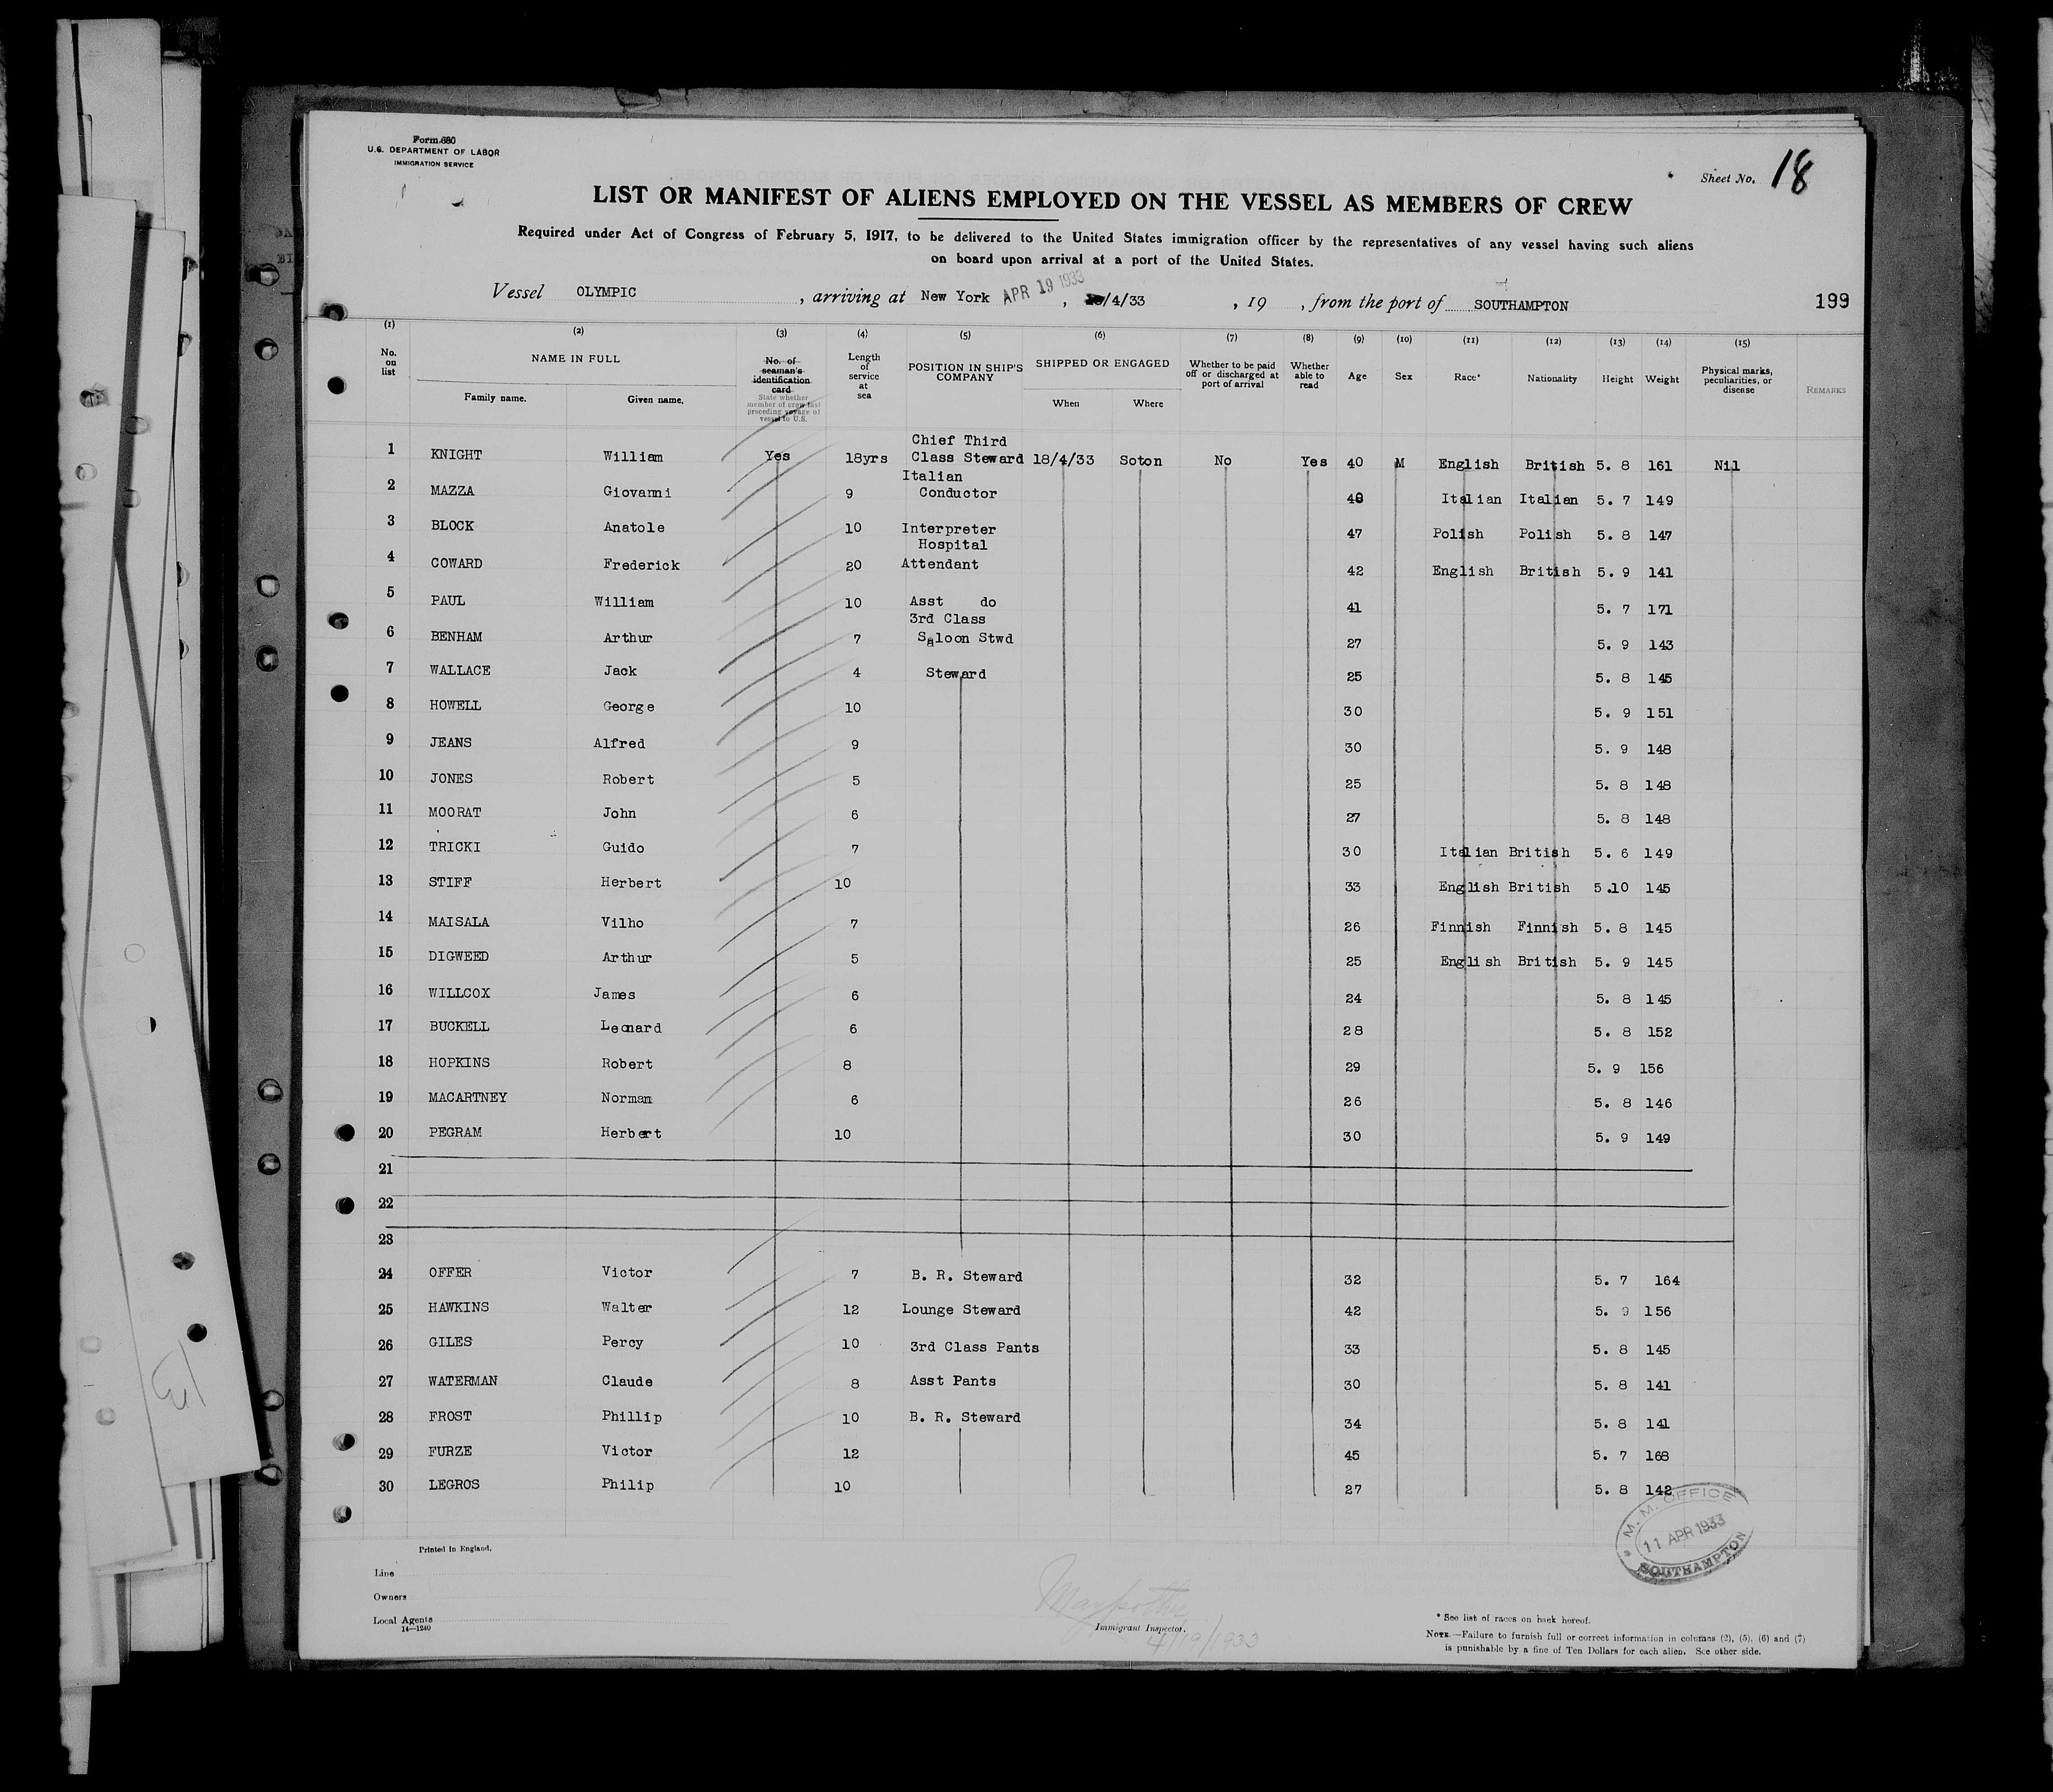 Form 680
U.S. DEPARTMENT OF LABOR
IMMIGRATION SERVICE
Sheet No. 18
LIST OR MANIFEST OF ALIENS EMPLOYED ON THE VESSEL AS MEMBERS OF CREW
Required under Act of Congress of February 5, 1917, to be delivered to the United States immigration officer by the representatives of any vessel having such aliens
on board upon arrival at a port of the United States.
Vessel OLYMPIC, arriving at New York APR 19 1933, /4/33, 19 , from the port of SOUTHAMPTON 199
(1) (2) (3) (4) (5) (6) (7) (8) (9) (10) (11) (12) (13) (14) (15)
No. on list NAME IN FULL Family name. Given name. No. of seaman's identification card State whether member of crew last preceding voyage of vessel to U.S. Length of service at sea POSITION IN SHIP'S COMPANY SHIPPED OR ENGAGED When Where Whether to be paid off or discharged at port of arrival Whether able to read Age Sex Race* Nationality Height Weight Physical marks, peculiarities, or disease REMARKS
1 KNIGHT William Yes 18yrs Chief Third Class Steward 18/4/33 Soton No Yes 40 M English British 5. 8 161 Nil
2 MAZZA Giovanni 9 Italian Conductor 40 Italian Italian 5. 7 149
3 BLOCK Anatole 10 Interpreter 47 Polish Polish 5. 8 147
4 COWARD Frederick 20 Hospital Attendant 42 English British 5. 9 141
5 PAUL William 10 Asst do 41 5. 7 171
6 BENHAM Arthur 7 3rd Class Saloon Stwd 27 5. 9 143
7 WALLACE Jack 4 Steward 25 5. 8 145
8 HOWELL George 10 30 5. 9 151
9 JEANS Alfred 9 30 5. 9 148
10 JONES Robert 5 25 5. 8 148
11 MOORAT John 6 27 5. 8 148
12 TRICKI Guido 7 30 Italian British 5. 6 149
13 STIFF Herbert 10 33 English British 5.10 145
14 MAISALA Vilho 7 26 Finnish Finnish 5. 8 145
15 DIGWEED Arthur 5 25 English British 5. 9 145
16 WILLCOX James 6 24 5. 8 145
17 BUCKELL Leonard 6 28 5. 8 152
18 HOPKINS Robert 8 29 5. 9 156
19 MACARTNEY Norman 6 26 5. 8 146
20 PEGRAM Herbert 10 30 5. 9 149
21
22
23
24 OFFER Victor 7 B. R. Steward 32 5. 7 164
25 HAWKINS Walter 12 Lounge Steward 42 5. 9 156
26 GILES Percy 10 3rd Class Pants 33 5. 8 145
27 WATERMAN Claude 8 Asst Pants 30 5. 8 141
28 FROST Phillip 10 B. R. Steward 34 5. 8 141
29 FURZE Victor 12 45 5. 7 168
30 LEGROS Philip 10 27 5. 8 142
M. M. OFFICE
11 APR 1933
SOUTHAMPTON
Printed in England.
Line
Owners
Local Agents
14—1240
Immigrant Inspector.
4/19/1933
* See list of races on back hereof.
NOTE.—Failure to furnish full or correct information in columns (2), (5), (6) and (7)
is punishable by a fine of Ten Dollars for each alien. See other side.
13